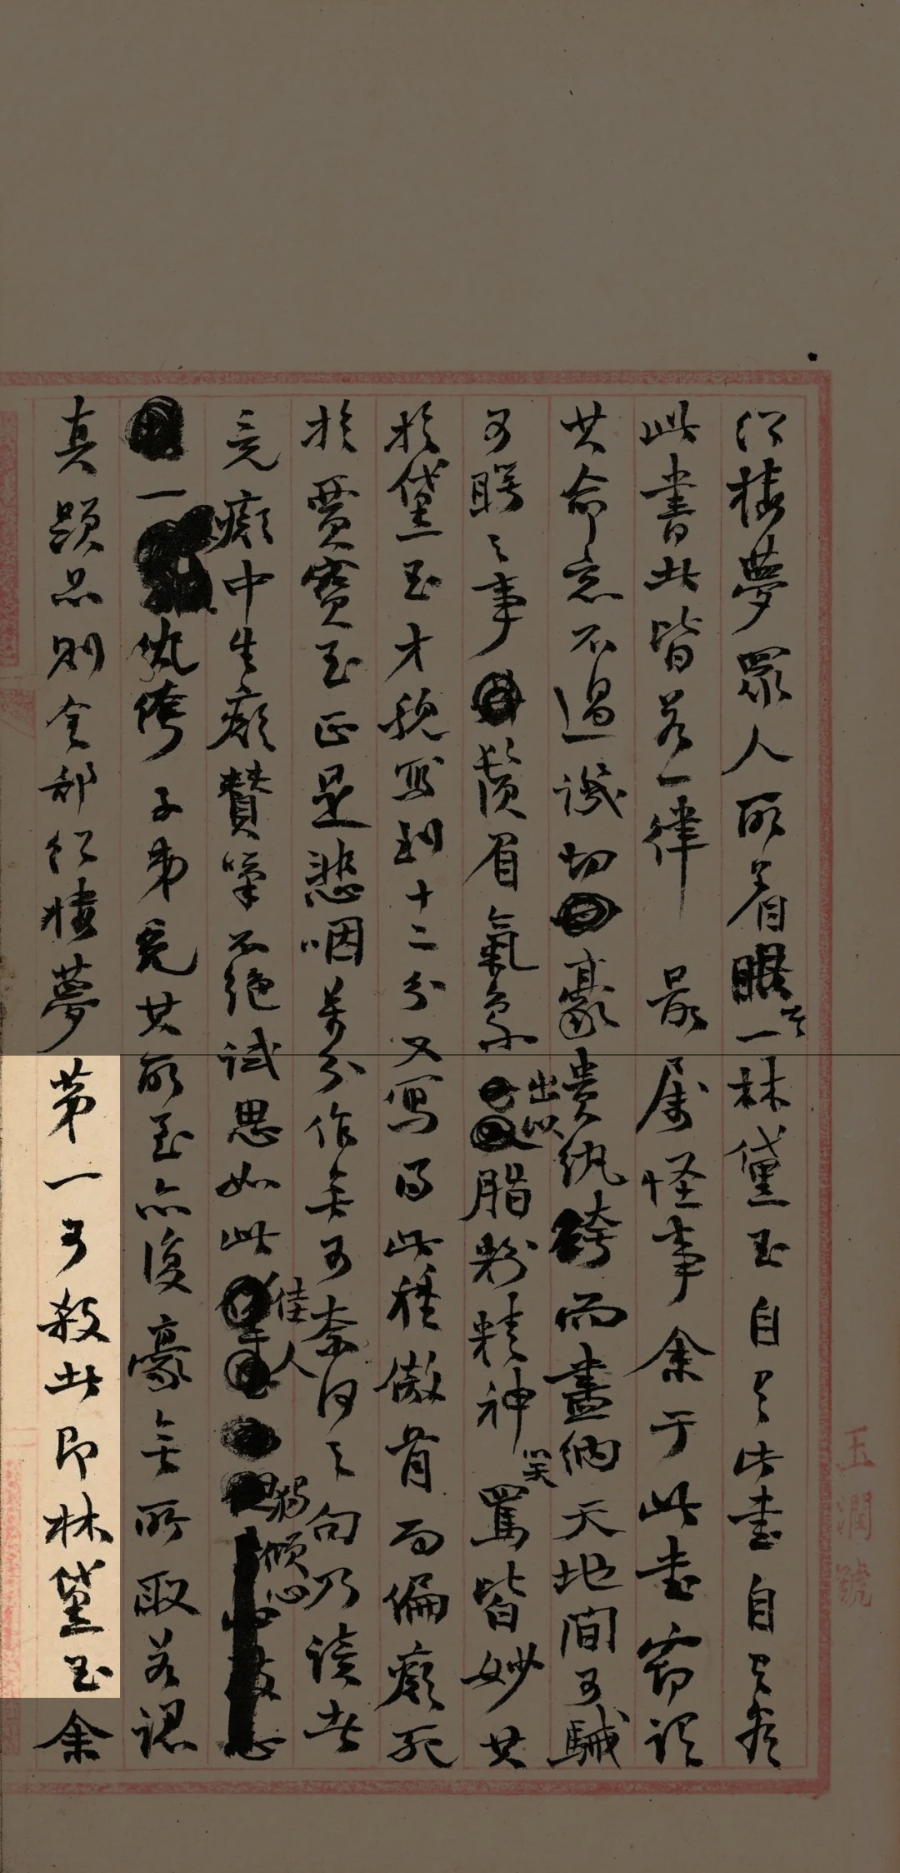 红楼梦众人所着眼者一林黛玉自见此书自见
此书者皆若一律最属怪事余于此书窃谓
其命意不过讥切豪贵纨绔而尽纳天地间可骇
可眙之事须眉气象出以脂粉精神笑骂皆妙其
于黛玉才貌写到十二分又写得此种傲骨而偏痴死
于贾宝玉正是悲咽万分作无可奈何之句乃读者
竟痴中生痴赞叹不绝试思如此佳人独倾心
一纨绔子弟充其所至亦复毫无所取若认
真题品则全部红楼梦第一可杀者即林黛玉余